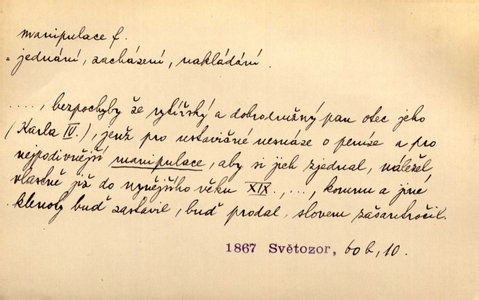 manipulace f.
= jednání, zacházení, nakládání.
...., bezpochyby že rytířský a dobrodružný pan otec jeho
(Karla IV.), jenž pro ustavičné nesnáze o peníze a pro
nejpodivnější manipulace, aby si jich zjednal, náležel
vlastně již do nynějšího věku XIX., ..., korunu a jiné
klenoty buď zastavil, buď prodal, slovem zašantročil.
1867 Světozor, 60 b, 10.